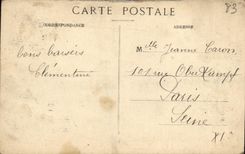 CARTE POSTALE
83
CORRESPONDANCE
ADRESSE
Bons baisers
Clémentine
Mlle Jeanne Caron
101 rue Oberkampf
Paris
Seine
XIe